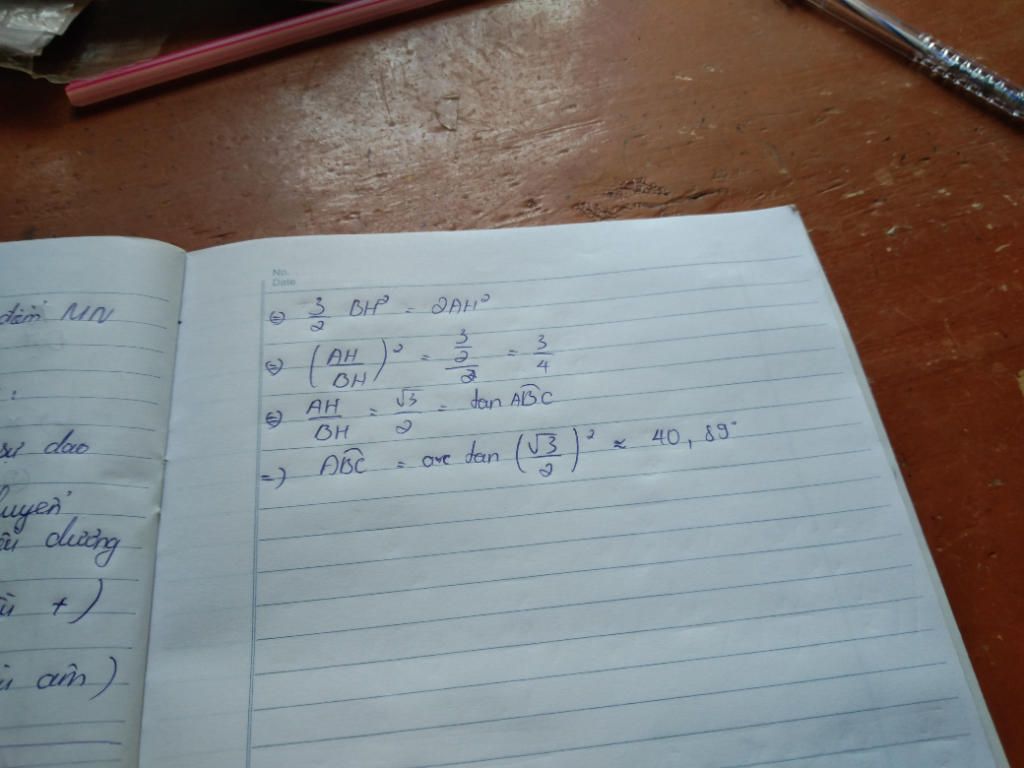 điểm MN
:
sự dao
dương
+)
âm)
No.
Date
⇔ 3/2 BH² = 2AH²
⇔ (AH/BH)² = (3/2)/2 = 3/4
⇔ AH/BH = √3/2 = tan ABC
=) ABC = arc tan (√3/2)² ≈ 40,89°